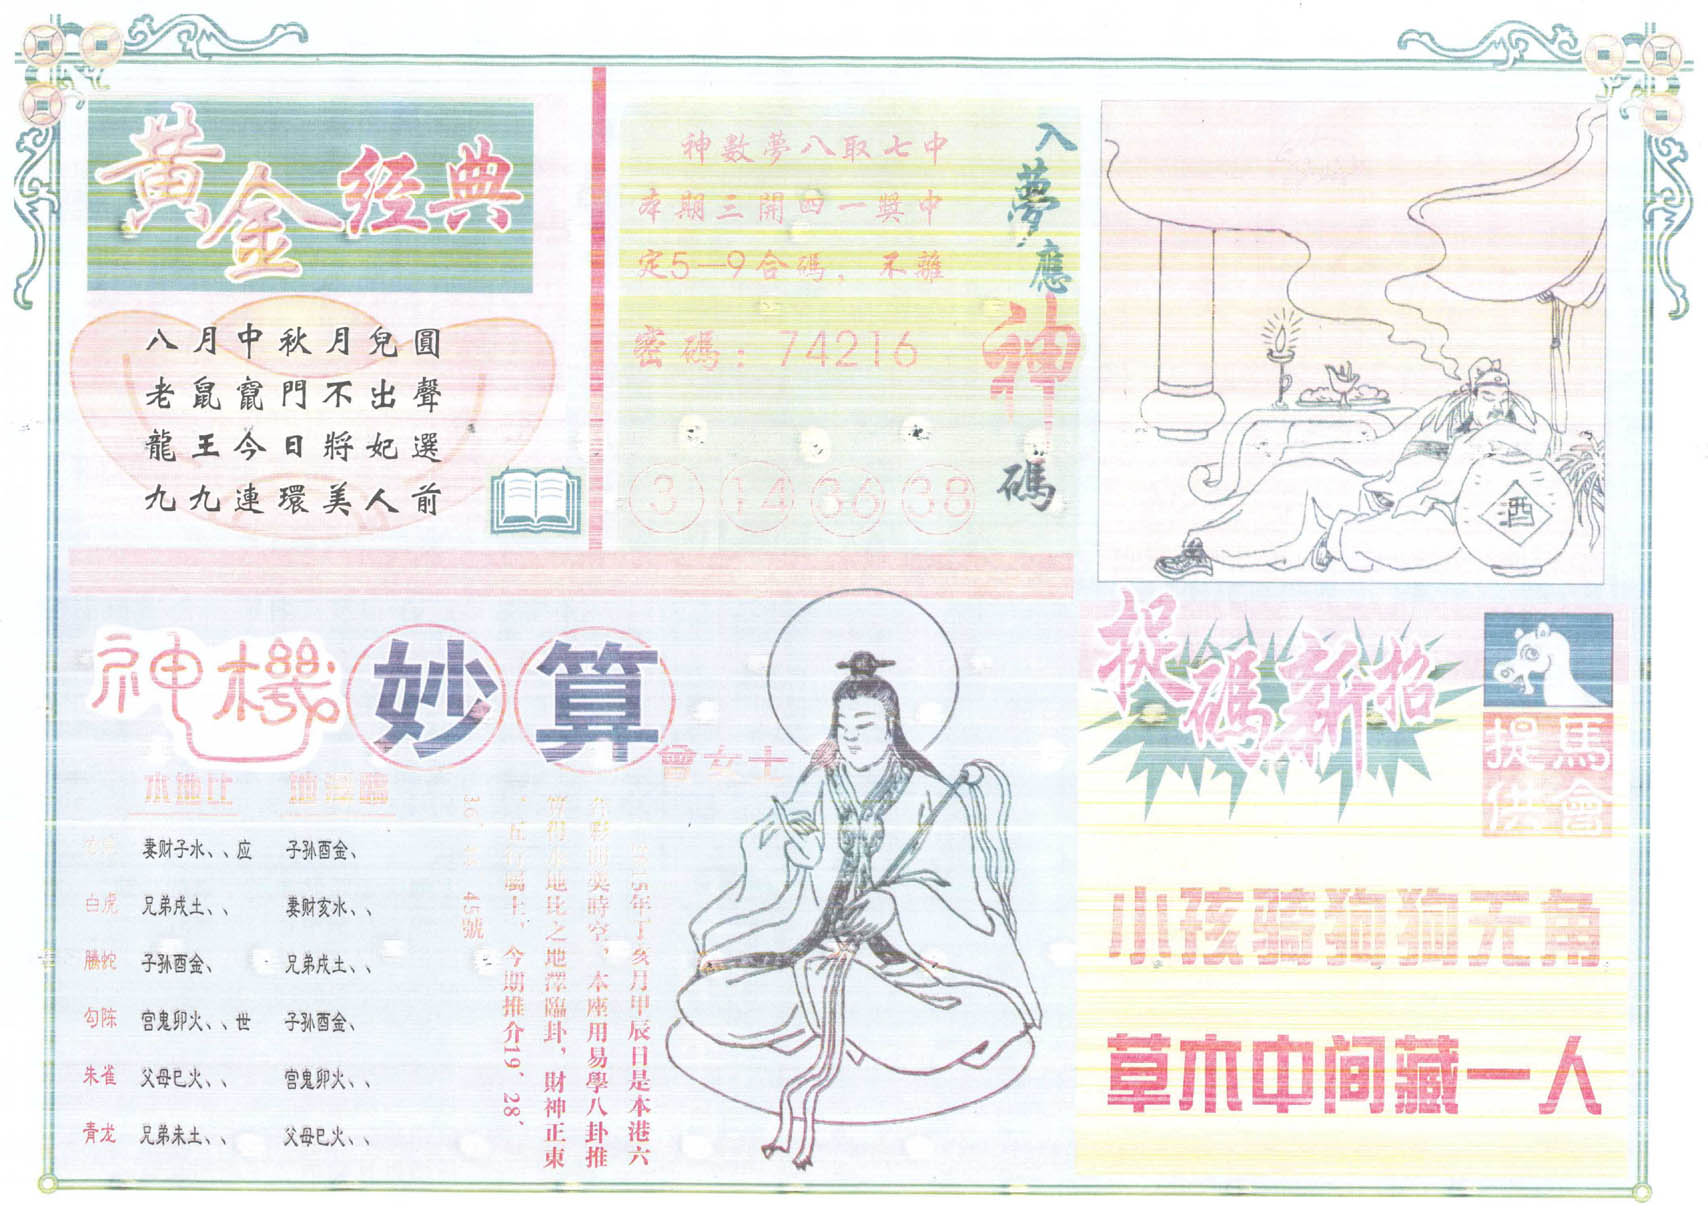 黄金经典
八月中秋月兒圓
老鼠竄門不出聲
龍王今日將妃選
九九連環美人前
神數夢八取七中
本期三開四一獎中
定5—9合碼，不離
密碼：74216
3 14 36 38
入夢應神碼
酒
神機妙算
曾女士
水地比 地澤臨
妻财子水、、应 子孙酉金、
白虎 兄弟戌土、、 妻财亥水、、
螣蛇 子孙酉金、 兄弟戌土、、
勾陈 宫鬼卯火、、世 子孙酉金、
朱雀 父母巳火、、 宫鬼卯火、、
青龙 兄弟未土、、 父母巳火、、
年丁亥月甲辰日是本港六
合彩開獎時空，本座用易學八卦推
算得水地比之地澤臨卦，財神正東
，五行屬土，今期推介19、28、
36、45號
捉碼新招
馬會
捉供
小孩骑狗狗无角
草木中间藏一人